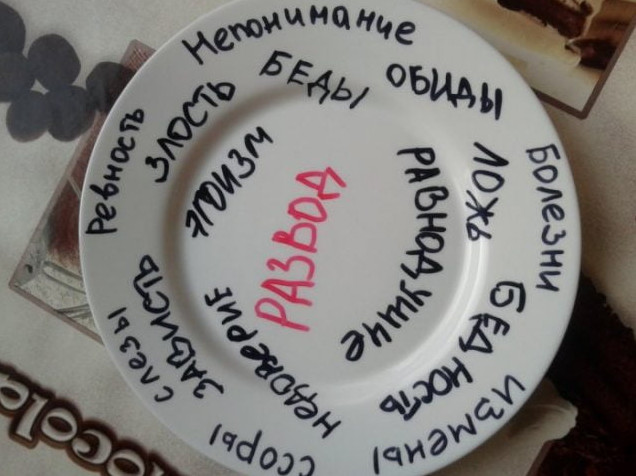 Непонимание
БЕДЫ
ОБИДЫ
Ревность
ЗЛОСТЬ
ЭГОИЗМ
РАЗВОД
РАВНОДУШИЕ
ЛОЖЬ
Болезни
БЕДНОСТЬ
ИЗМЕНЫ
ССОРЫ
НЕДОВЕРИЕ
ЗАВИСТЬ
СЛЕЗЫ